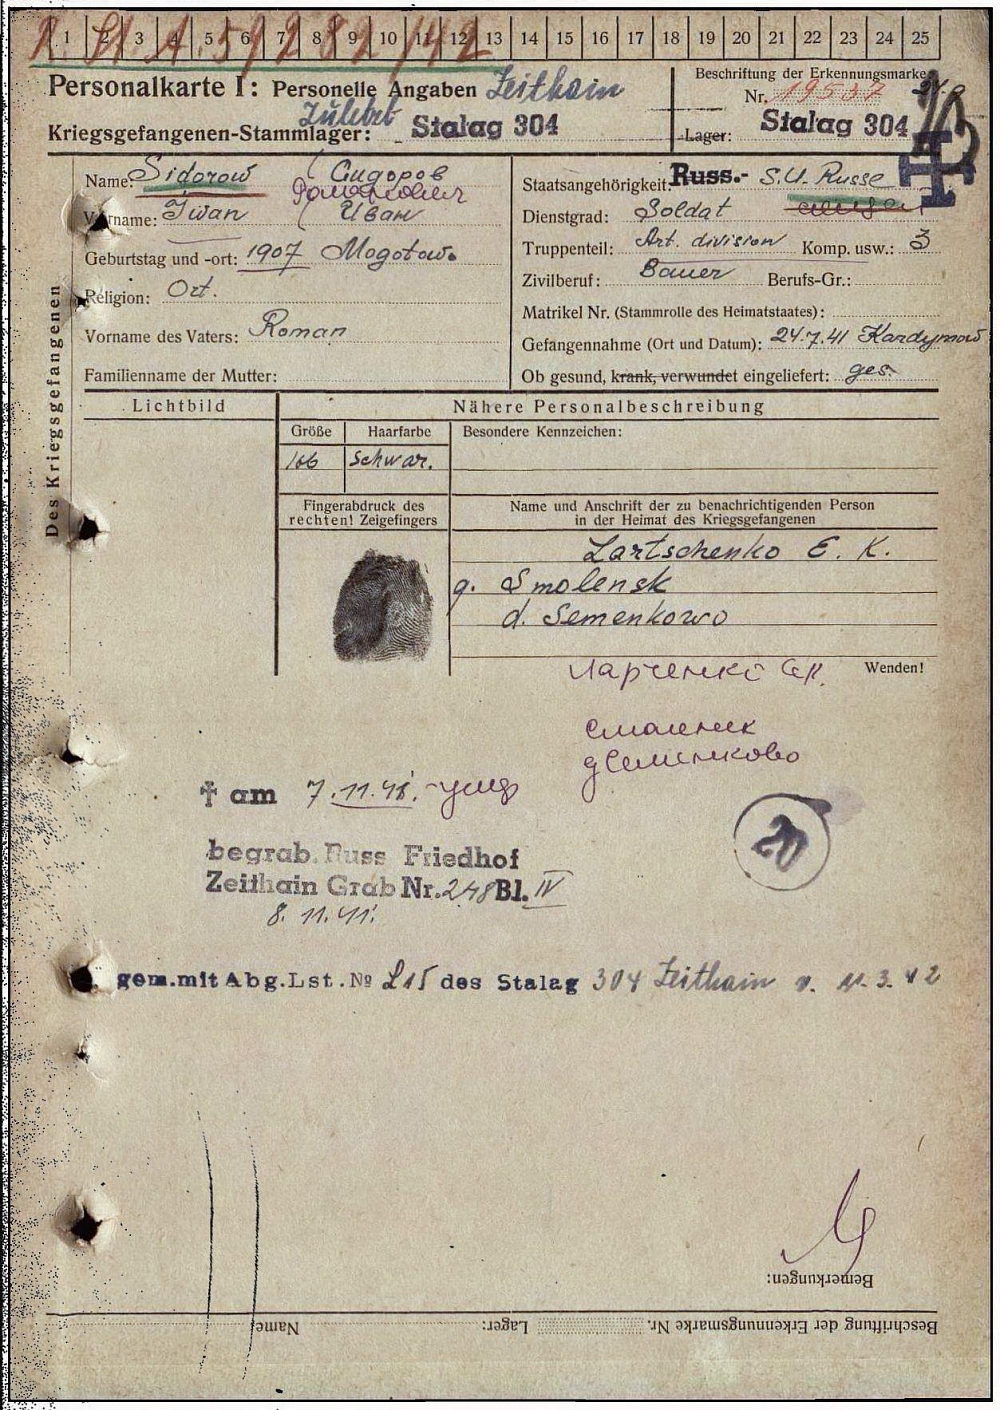 1 2 3 4 5 6 7 8 9 10 11 12 13 14 15 16 17 18 19 20 21 22 23 24 25
R. Bl. A. 59282/42
Personalkarte I: Personelle Angaben Zeithain
Beschriftung der Erkennungsmarke
Nr. 19537
Zuletzt
Kriegsgefangenen-Stammlager: Stalag 304
Lager: Stalag 304
Des Kriegsgefangenen
Name: Sidorow Сидоров
Романович
Vorname: Iwan Иван
Geburtstag und -ort: 1907 Mogotowo
Religion: Ort.
Vorname des Vaters: Roman
Familienname der Mutter:
Staatsangehörigkeit: Russ.- S.U. Russe
Dienstgrad: Soldat
Truppenteil: Art. division Komp. usw.: 3
Zivilberuf: Bauer Berufs-Gr.:
Matrikel Nr. (Stammrolle des Heimatstaates):
Gefangennahme (Ort und Datum): 24.7.41 Kardymowo
Ob gesund, krank, verwundet eingeliefert: ges.
Lichtbild
Nähere Personalbeschreibung
Größe Haarfarbe Besondere Kennzeichen:
166 schwar.
Fingerabdruck des
rechten! Zeigefingers
Name und Anschrift der zu benachrichtigenden Person
in der Heimat des Kriegsgefangenen
Lartschenko E. K.
g. Smolensk
d. Semenkowo
Wenden!
Ларченко
Смаленск
д Семенково
† am 7.11.41. умер
20
begrab. Russ Friedhof
Zeithain Grab Nr. 248 Bl. IV
8. 11. 41.
gem. mit Abg. Lst. № 215 des Stalag 304 Zeithain v. 11.3.42
Bemerkungen:
Beschriftung der Erkennungsmarke Nr. Lager: Name: